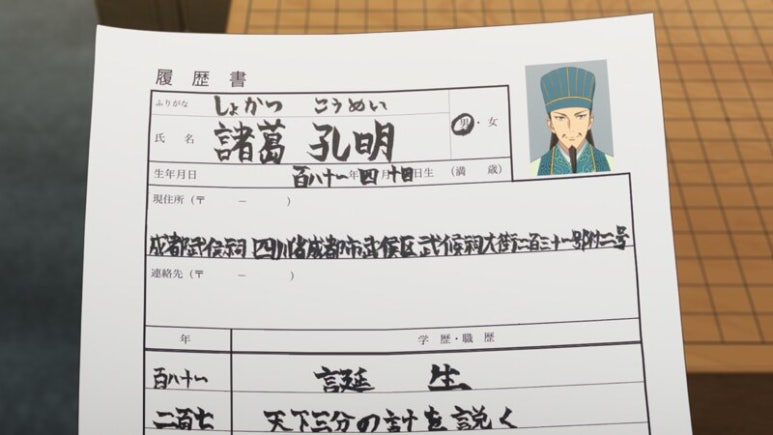 履歴書
ふりがな しょかつ こうめい
氏 名 諸葛 孔明 男・女
生年月日 百八十一年四月十日生 (満 歳)
現住所 (〒 － )
成都武侯祠 四川省成都市武侯区武候祠大街二百三十一号附二号
連絡先 (〒 － )
年 学歴・職歴
百八十一 誕 生
二百七 天下三分の計を説く